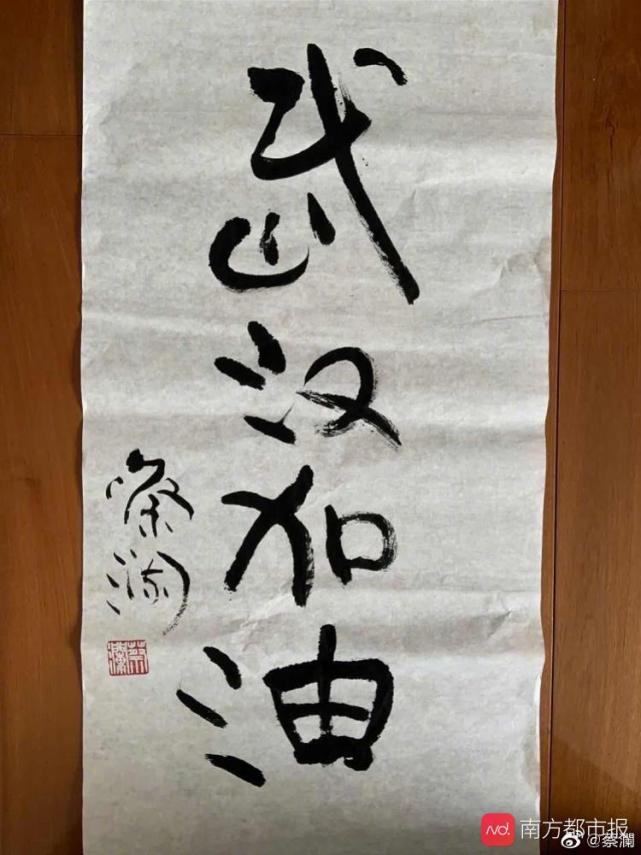 武汉加油
蔡澜
蔡瀾
南方都市报
@蔡瀾